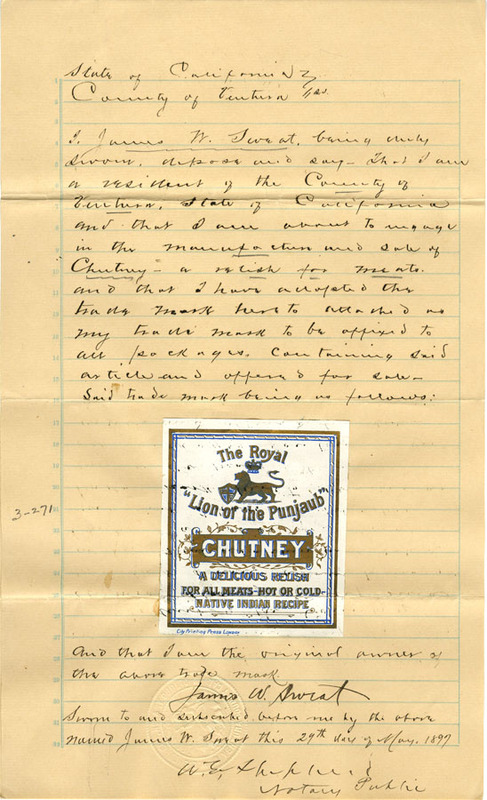 State of California
County of Ventura } ss.
I, James W. Sweat, being duly
sworn, depose and say - That I am
a resident of the County of
Ventura, State of California
and that I am about to engage
in the manufacture and sale of
Chutney - a relish for meats.
and that I have adopted the
trade mark hereto attached as
my trade mark to be affixed to
all packages, containing said
article and offered for sale -
Said trade mark being as follows:
The Royal
"Lion of the Punjaub"
CHUTNEY
A DELICIOUS RELISH
FOR ALL MEATS-HOT OR COLD-
NATIVE INDIAN RECIPE
City Printing Press London
3-271
And that I am the original owner of
the above trade mark
James W. Sweat
Sworn to and subscribed before me by the above
named James W. Sweat this 29th day of May, 1897
Notary Public